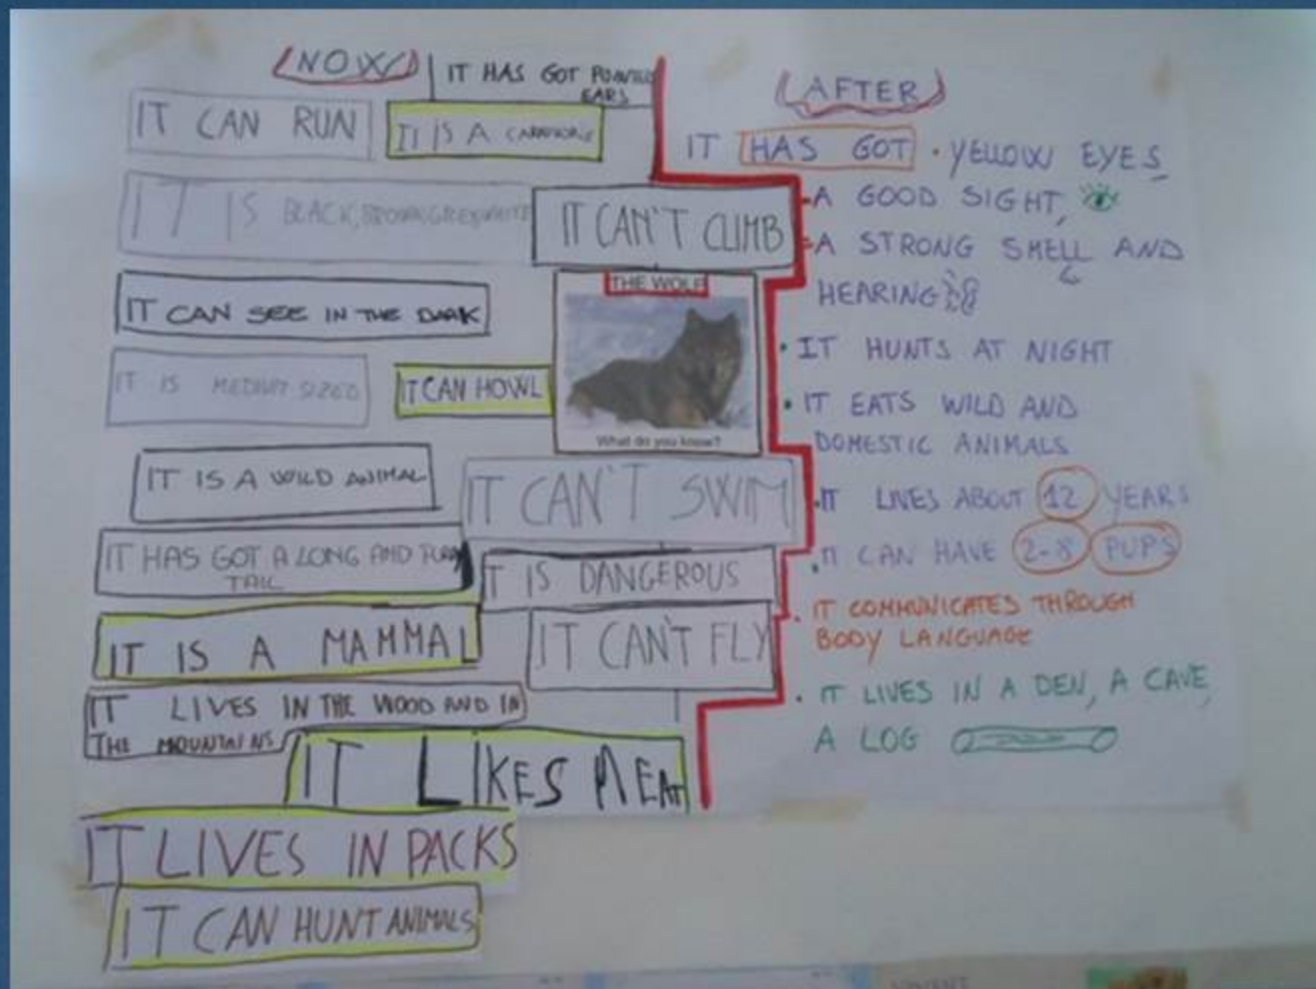 NOW
IT HAS GOT POINTED
EARS
IT CAN RUN
IT IS A CARNIVORE
IT IS BLACK, BROWN, GREY, WHITE
IT CAN'T CLIMB
IT CAN SEE IN THE DARK
THE WOLF
What do you know?
IT IS MEDIUM SIZED
IT CAN HOWL
IT IS A WILD ANIMAL
IT CAN'T SWIM
IT HAS GOT A LONG AND
TAIL
IT IS DANGEROUS
IT IS A MAMMAL
IT CAN'T FLY
IT LIVES IN THE WOOD AND IN
THE MOUNTAINS
IT LIKES MEAT
IT LIVES IN PACKS
IT CAN HUNT ANIMALS
AFTER
IT HAS GOT · YELLOW EYES,
-A GOOD SIGHT,
-A STRONG SMELL AND
HEARING
· IT HUNTS AT NIGHT
· IT EATS WILD AND
DOMESTIC ANIMALS
· IT LIVES ABOUT 12 YEARS
· IT CAN HAVE 2-8 PUPS
· IT COMMUNICATES THROUGH
BODY LANGUAGE
· IT LIVES IN A DEN, A CAVE,
A LOG